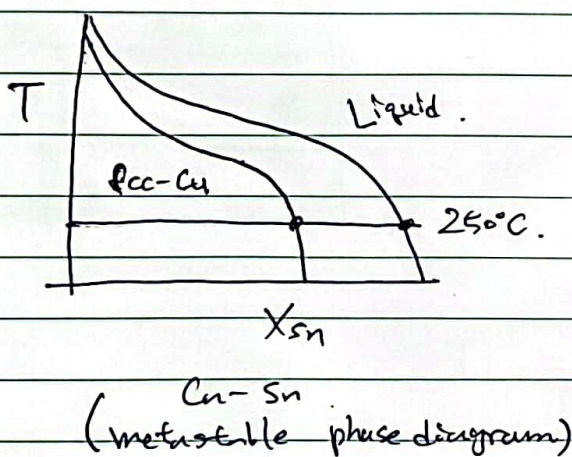 T
Liquid.
fcc-Cu
250°C.
Xsn
Cu-Sn
(metastable phase diagram)